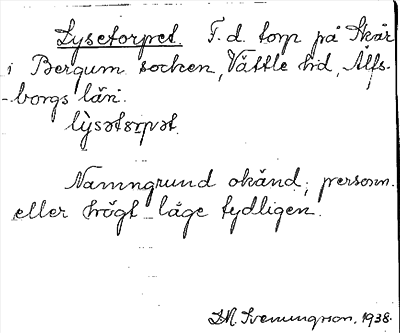 Lysetorpet. F.d. torp på Skår
i Bergum socken, Vättle hd, Älfs-
-borgs län.
lỳsətɷrpət
Namngrund okänd; personn.
eller högt läge tydligen.
S.M. Svenungsson. 1938.